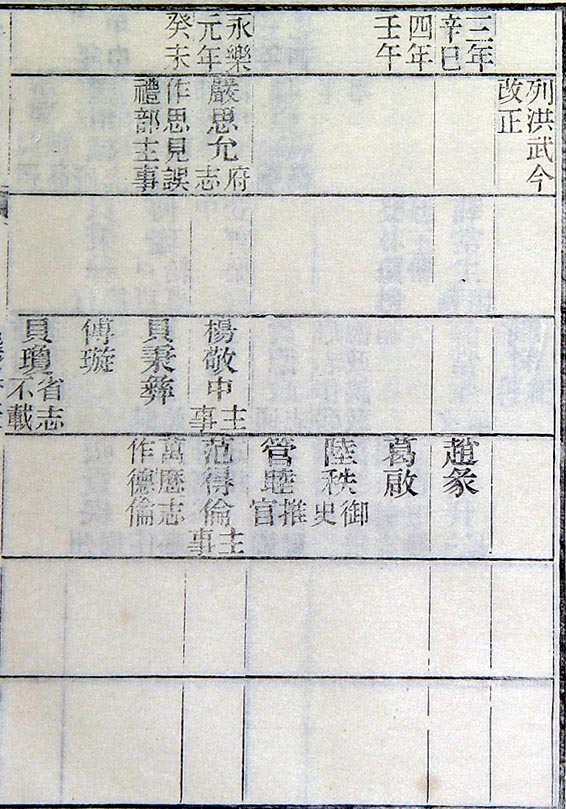 三年
辛巳
四年
壬午
永樂
元年
癸未
列洪武今
改正
嚴思允府志
作思見誤
禮部主事
楊敬中主事
貝秉彝
傅璇
貝瓊省志
不載
趙
葛啟
陸秩御史
管睦推官
范得倫主事
萬曆志
作德倫